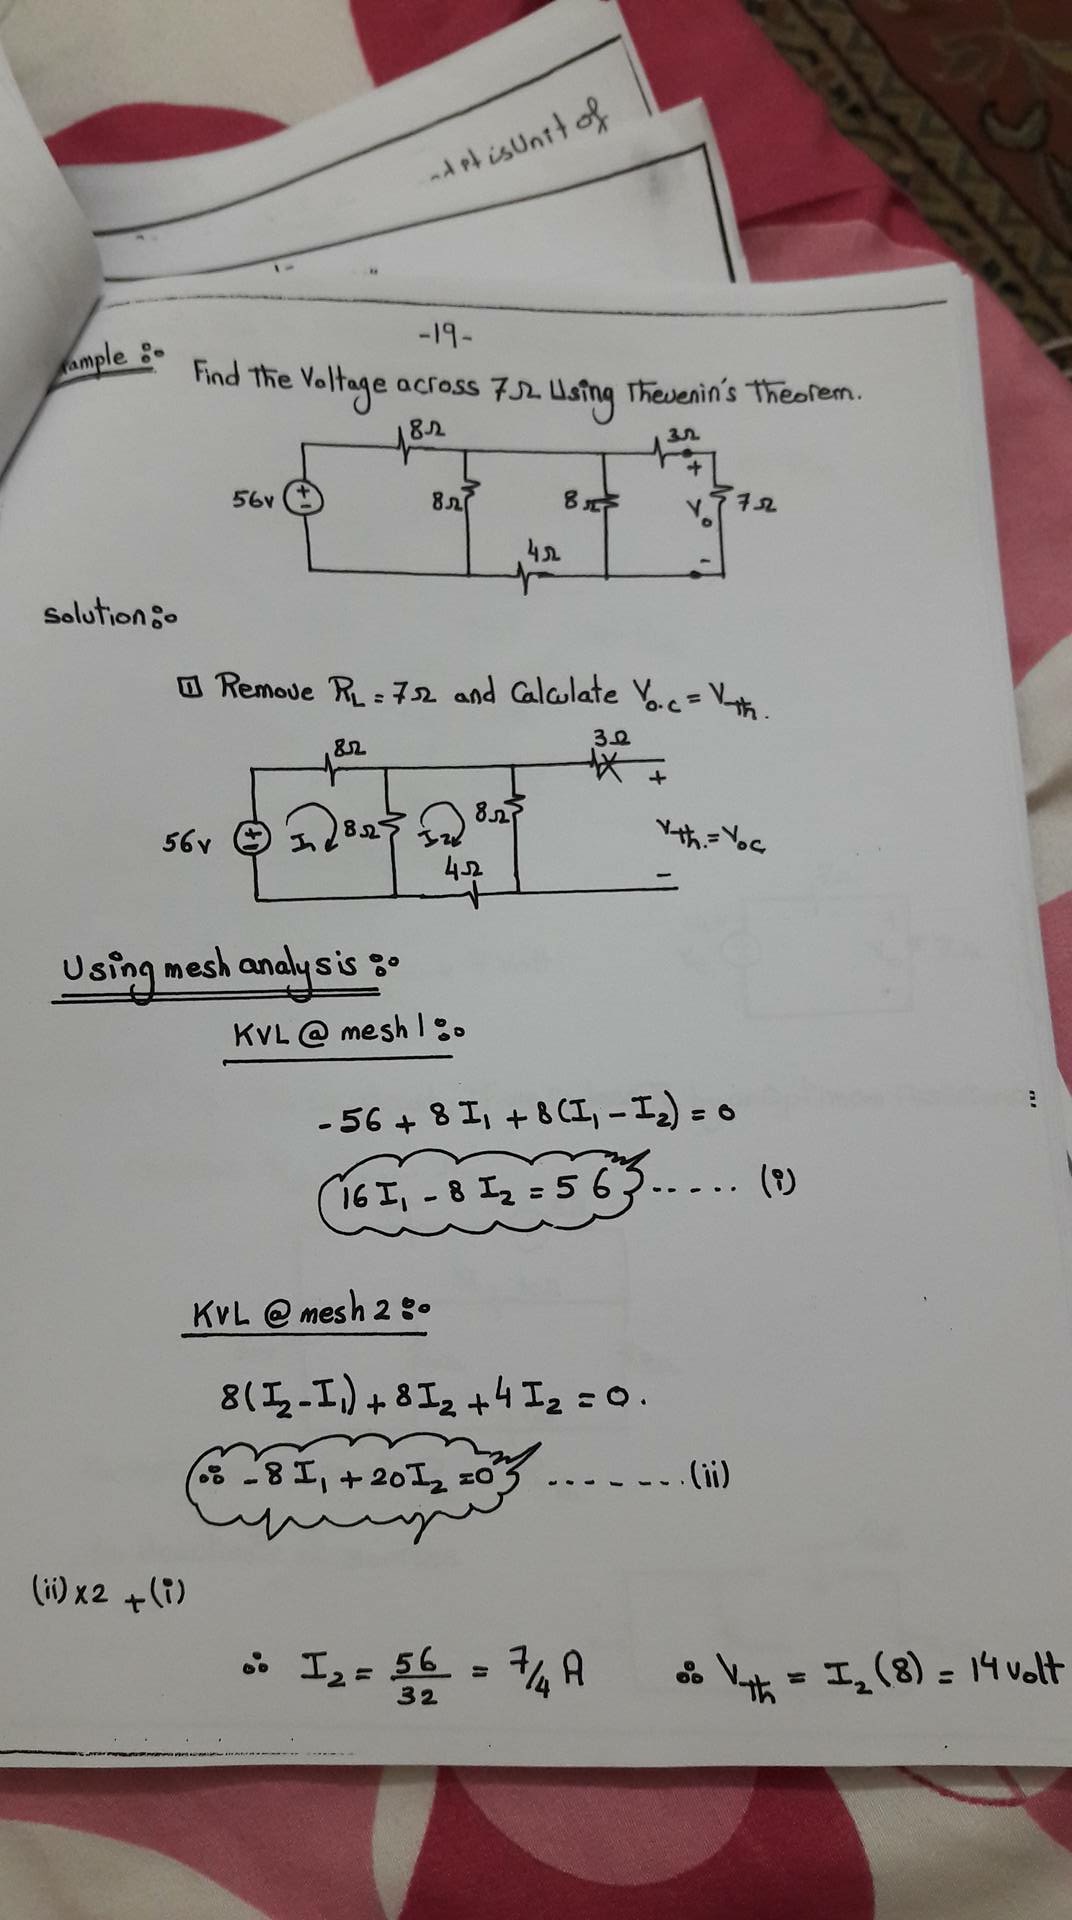 is Unit of
-19-
ample :-
Find the Voltage across 7Ω Using Thevenin's Theorem.
8Ω 3Ω
56v 8Ω 8Ω + Vo - 7Ω
4Ω
Solution :-
1 Remove RL = 7Ω and Calculate Vo.c = Vth.
8Ω 3Ω
56v I1 8Ω I2 8Ω + Vth. = Voc -
4Ω
Using mesh analysis :-
KVL @ mesh 1 :-
-56 + 8 I1 + 8(I1 - I2) = 0
16 I1 - 8 I2 = 56 ..... (i)
KVL @ mesh 2 :-
8(I2 - I1) + 8 I2 + 4 I2 = 0.
∴ -8 I1 + 20 I2 = 0 ....... (ii)
(ii) x2 + (i)
∴ I2 = 56/32 = 7/4 A ∴ Vth = I2 (8) = 14 volt